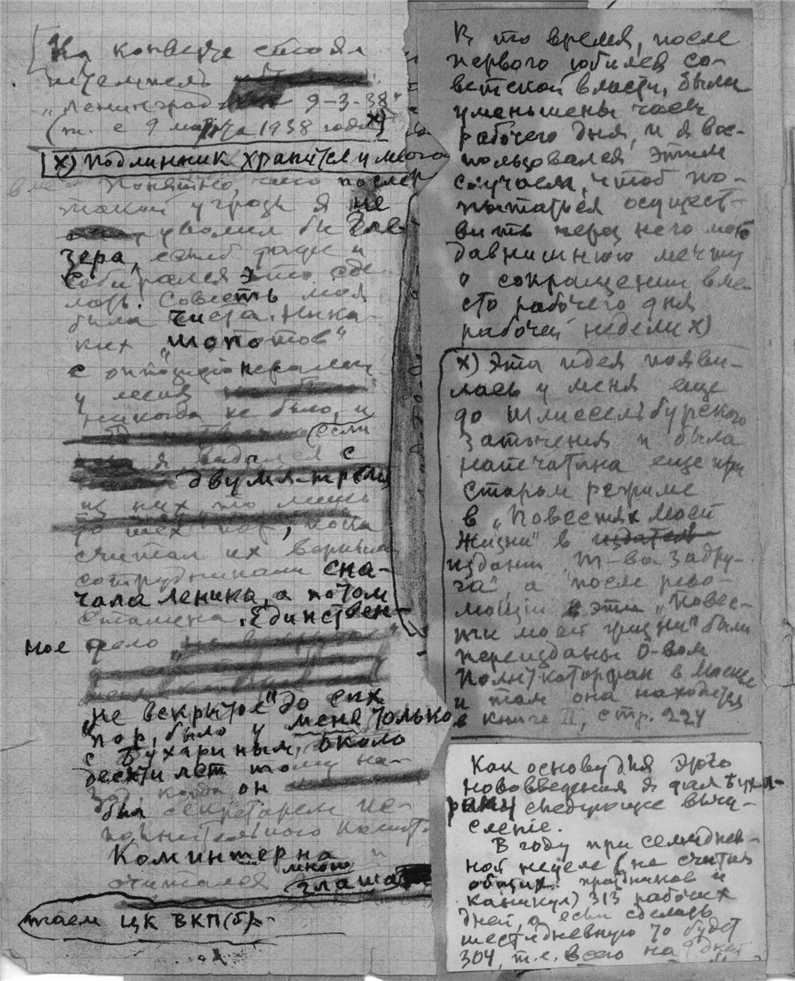 [На конверте стоял
штемпель
„Ленинград 9-3-38"
(т. е 9 марта 1938 года х)
х) Подлинник хранится у меня
Понятно, что после
такой угрозы я не
уволил бы Гле-
зера, если даже и
собирался это сде-
лать. Совесть моя
была чиста. Ника-
ких „шопотов"
с оппозиционерами
у меня
никогда не было, и
(если
я видался с
двумя-тремя
из них, то лишь
до тех пор, пока
считал их верными
сотрудниками сна-
чала Ленина, а потом
Сталина. Единствен-
мое дело
„не вскрытое" до сих
пор, было у меня только
с Бухариным, около
десяти лет тому на-
зад, когда он
был секретарем Ис-
полнительного Комит.
Коминтерна и
считался много
глаша-
таем ЦК ВКП(б).
В то время, после
первого юбилея со-
ветской власти, были
уменьшены часы
рабочего дня, и я вос-
пользовался этим
случаем, чтоб по-
пытаться осущест-
вить через него мою
давнишнюю мечту
о сокращении вме-
сто рабочего дня
рабочей недели х)
х) Эта идея появи-
лась у меня еще
до Шлиссельбургского
заточения и была
напечатана еще при
старом режиме
в „Повестях моей
жизни" в
издании Т-ва Задру-
га", а после рево-
люции эти „Повес-
ти моей жизни" были
переизданы О-вом
Политкаторжан в Москве
и там она находится
в книге II, стр. 224
Как основу для этого
нововведения я дал Буха-
рину следующее вычи-
сление.
В году при семиднев-
ной неделе (не считая
общих праздников и
каникул) 313 рабочих
дней, а если сделать
шестидневную то будет
304, т.е. всего на 9 дней